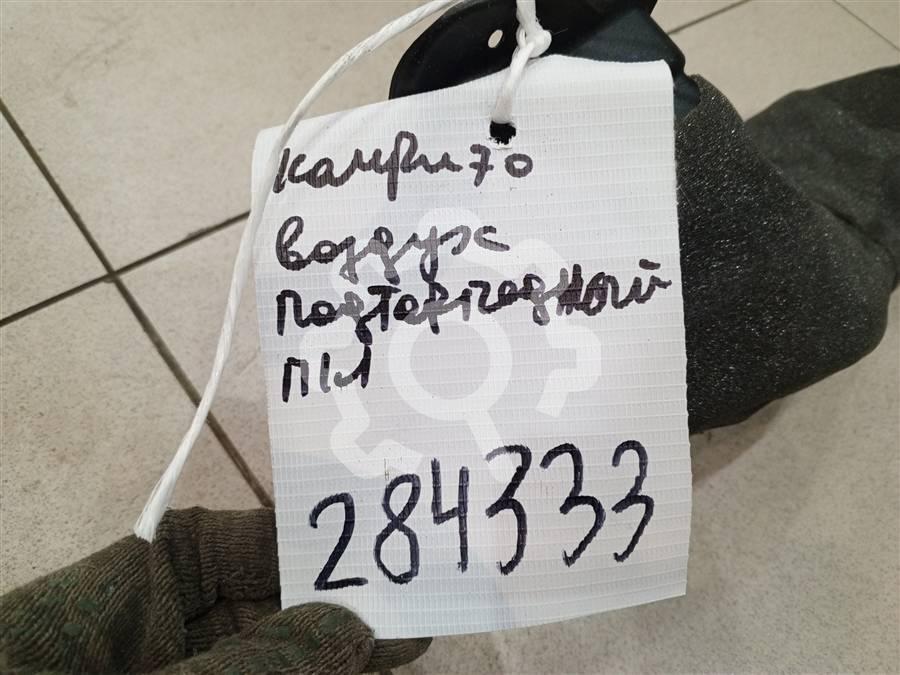 Камри 70
Воздух
Подторпедный
ПЛ
284333